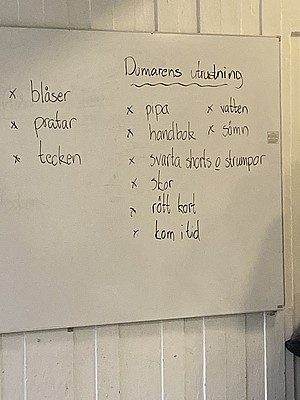 x blåser
x pratar
x tecken
Domarens utrustning
x pipa x vatten
x handbok x sömn
x svarta shorts o strumpor
x skor
x rött kort
x kom i tid